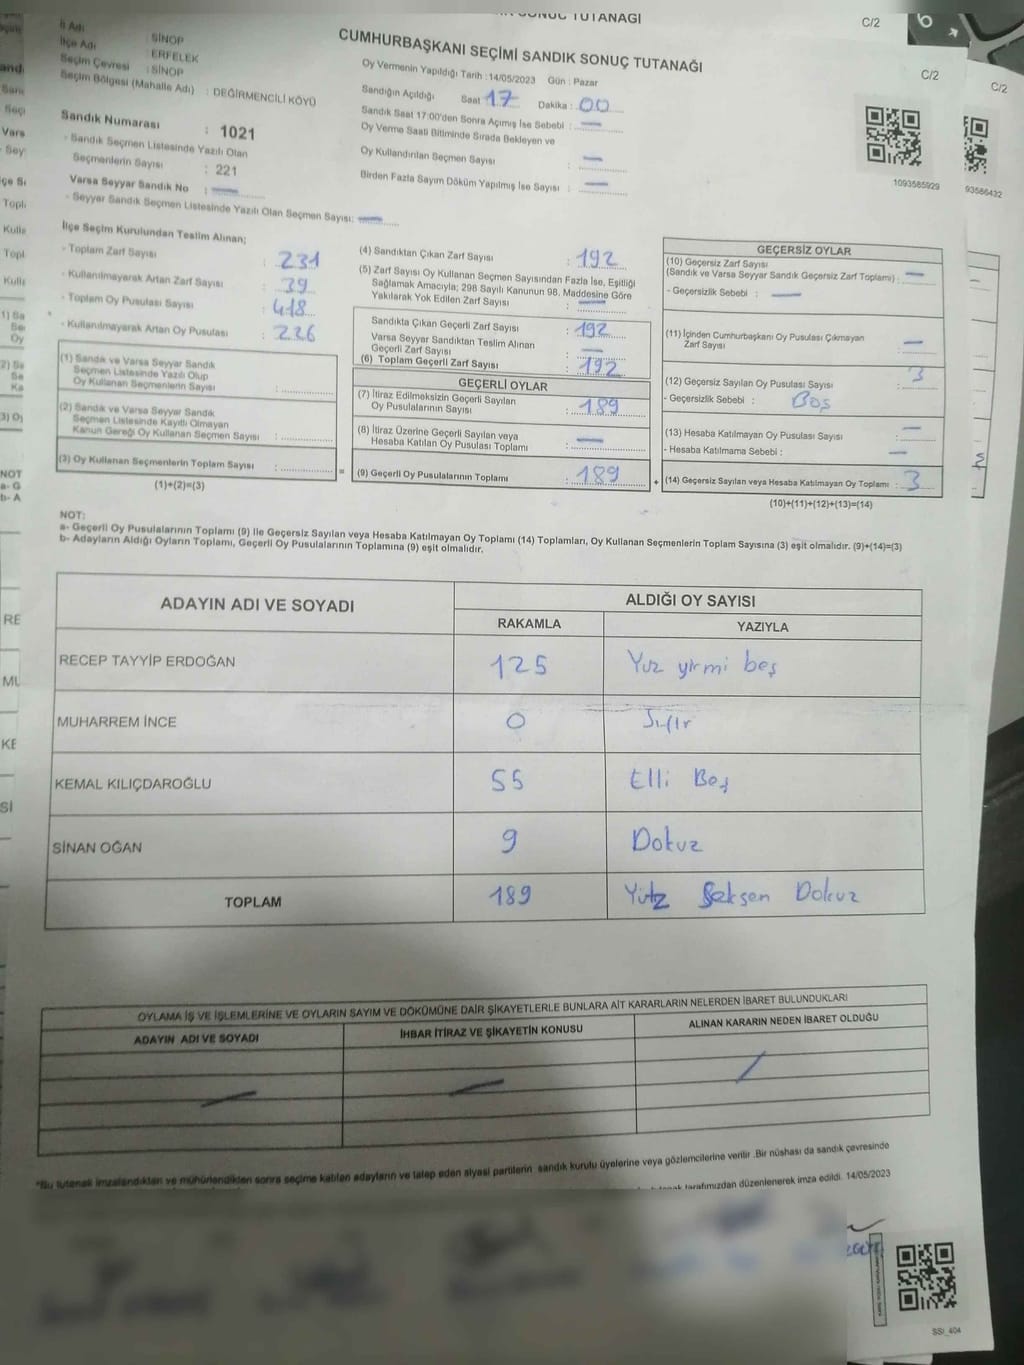 SONUÇ TUTANAĞI
C/2
İl Adı : SİNOP
İlçe Adı : ERFELEK
Seçim Çevresi : SİNOP
Seçim Bölgesi (Mahalle Adı) : DEĞİRMENCİLİ KÖYÜ
Sandık Numarası : 1021
- Sandık Seçmen Listesinde Yazılı Olan
Seçmenlerin Sayısı : 221
Varsa Seyyar Sandık No : —
- Seyyar Sandık Seçmen Listesinde Yazılı Olan Seçmen Sayısı: —
CUMHURBAŞKANI SEÇİMİ SANDIK SONUÇ TUTANAĞI
Oy Vermenin Yapıldığı Tarih :14/05/2023 Gün : Pazar
Sandığın Açıldığı Saat 17 Dakika : 00
Sandık Saat 17:00'den Sonra Açımış İse Sebebi : —
Oy Verme Saati Bitiminde Sırada Bekleyen ve
Oy Kullandırılan Seçmen Sayısı : —
Birden Fazla Sayım Döküm Yapılmış İse Sayısı : —
C/2
1093585929
C/2
93586432
İlçe Seçim Kurulundan Teslim Alınan;
- Toplam Zarf Sayısı : 231
- Kullanılmayarak Artan Zarf Sayısı : 39
- Toplam Oy Pusulası Sayısı : 418
- Kullanılmayarak Artan Oy Pusulası : 226
(1) Sandık ve Varsa Seyyar Sandık
Seçmen Listesinde Yazılı Olup
Oy Kullanan Seçmenlerin Sayısı :
(2) Sandık ve Varsa Seyyar Sandık
Seçmen Listesinde Kayıtlı Olmayan
Kanun Gereği Oy Kullanan Seçmen Sayısı :
(3) Oy Kullanan Seçmenlerin Toplam Sayısı :
(1)+(2)=(3)
=
(4) Sandıktan Çıkan Zarf Sayısı : 192
(5) Zarf Sayısı Oy Kullanan Seçmen Sayısından Fazla İse, Eşitliği
Sağlamak Amacıyla; 298 Sayılı Kanunun 98. Maddesine Göre
Yakılarak Yok Edilen Zarf Sayısı : —
Sandıkta Çıkan Geçerli Zarf Sayısı : 192
Varsa Seyyar Sandıktan Teslim Alınan
Geçerli Zarf Sayısı : —
(6) Toplam Geçerli Zarf Sayısı : 192
GEÇERLİ OYLAR
(7) İtiraz Edilmeksizin Geçerli Sayılan
Oy Pusulalarının Sayısı : 189
(8) İtiraz Üzerine Geçerli Sayılan veya
Hesaba Katılan Oy Pusulası Toplamı : —
(9) Geçerli Oy Pusulalarının Toplamı : 189
+
GEÇERSİZ OYLAR
(10) Geçersiz Zarf Sayısı
(Sandık ve Varsa Seyyar Sandık Geçersiz Zarf Toplamı) : —
- Geçersizlik Sebebi : —
(11) İçinden Cumhurbaşkanı Oy Pusulası Çıkmayan
Zarf Sayısı : —
(12) Geçersiz Sayılan Oy Pusulası Sayısı : 3
- Geçersizlik Sebebi : Boş
(13) Hesaba Katılmayan Oy Pusulası Sayısı : —
- Hesaba Katılmama Sebebi : —
(14) Geçersiz Sayılan veya Hesaba Katılmayan Oy Toplamı : 3
(10)+(11)+(12)+(13)=(14)
NOT:
a- Geçerli Oy Pusulalarının Toplamı (9) İle Geçersiz Sayılan veya Hesaba Katılmayan Oy Toplamı (14) Toplamları, Oy Kullanan Seçmenlerin Toplam Sayısına (3) eşit olmalıdır. (9)+(14)=(3)
b- Adayların Aldığı Oyların Toplamı, Geçerli Oy Pusulalarının Toplamına (9) eşit olmalıdır.
ADAYIN ADI VE SOYADI
ALDIĞI OY SAYISI
RAKAMLA YAZIYLA
RECEP TAYYİP ERDOĞAN 125 Yüz yirmi beş
MUHARREM İNCE 0 Sıfır
KEMAL KILIÇDAROĞLU 55 Elli Beş
SİNAN OĞAN 9 Dokuz
TOPLAM 189 Yüz Seksen Dokuz
OYLAMA İŞ VE İŞLEMLERİNE VE OYLARIN SAYIM VE DÖKÜMÜNE DAİR ŞİKAYETLERLE BUNLARA AİT KARARLARIN NELERDEN İBARET BULUNDUKLARI
ADAYIN ADI VE SOYADI İHBAR İTİRAZ VE ŞİKAYETİN KONUSU ALINAN KARARIN NEDEN İBARET OLDUĞU
*Bu tutanak imzalandıktan ve mühürlendikten sonra seçime katılan adayların ve talep eden siyasi partilerin sandık kurulu üyelerine veya gözlemcilerine verilir .Bir nüshası da sandık çevresinde
tarafımızdan düzenlenerek imza edildi. 14/05/2023
SSI_404